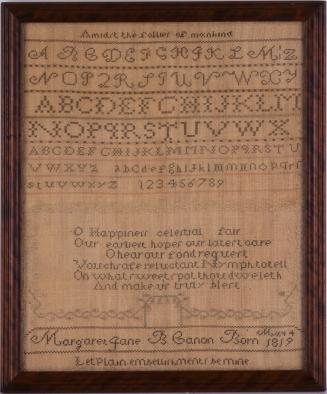 Amidst the follies of mankind
A B C D E F G H I K L M Z
N O P Q R S T U V W X Y
A B C D E F G H I J K L M
N O P Q R S T U V W X
A B C D E F G H I J K L M N O P Q R S T U
V W X Y Z a b c d e f g h i j k l m n o p q r s
s t u v w x y z 1 2 3 4 5 6 7 8 9
O Happiness celestial fair
Our earliest hopes our latest care
O hear our fond request
Vouchsafe reluctant Nymph to tell
On what sweet spot thou dwelleth
And make us truly blest
Margaret Jane B Canon Born May 4
1819
Let Plain embellishments be mine